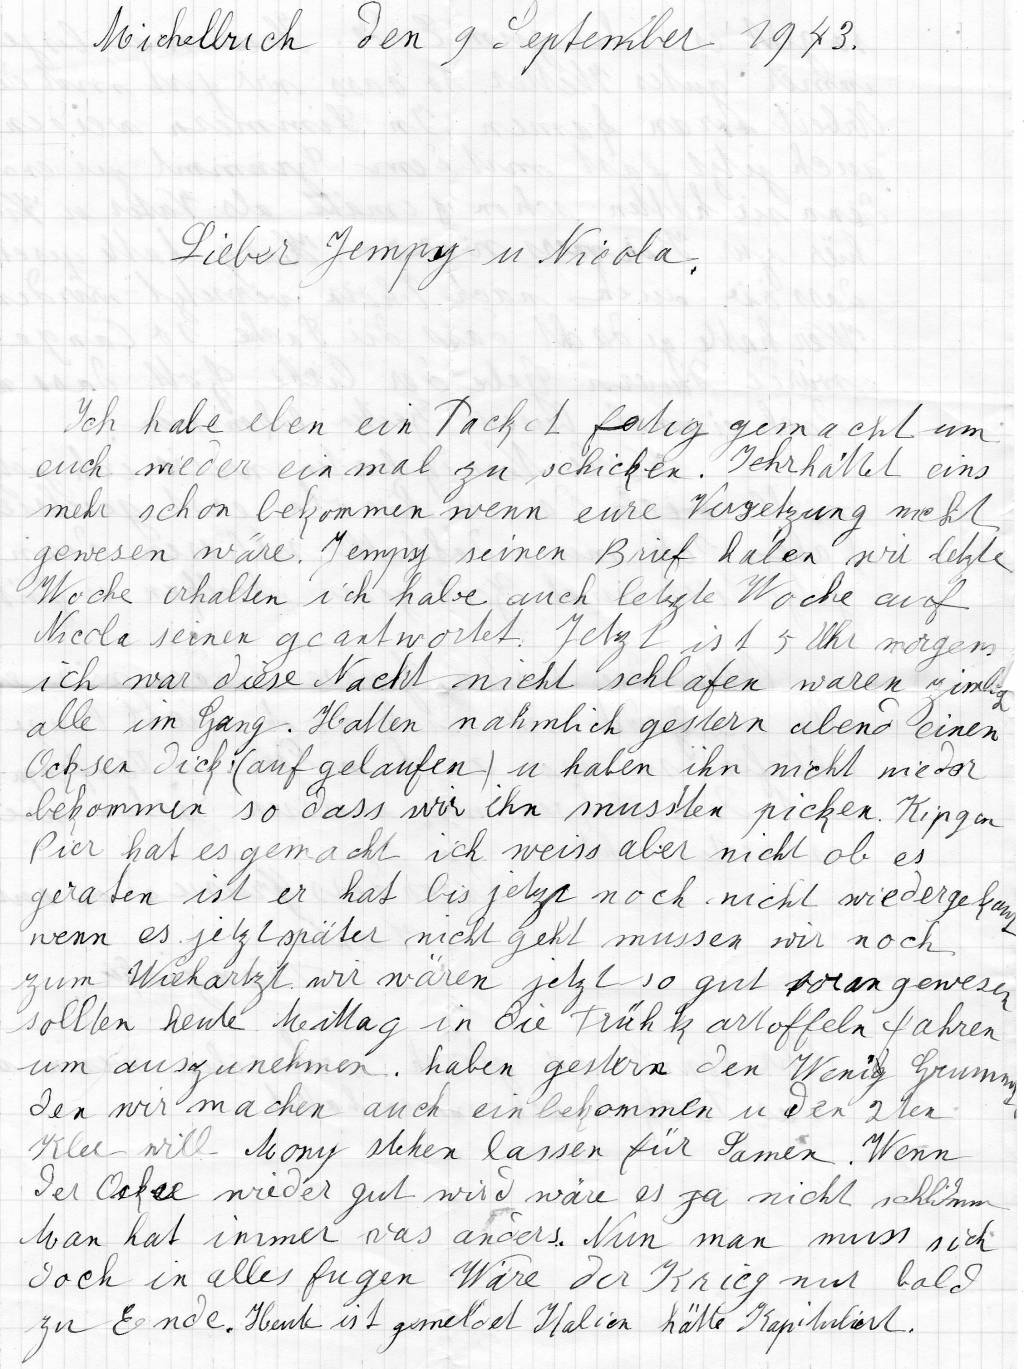 Michelbuch den 9 September 1943.
Lieber Jempy u Nicola.
Ich habe eben ein Packet fertig gemacht um
euch wieder einmal zu schicken. Ihr hättet eins
mehr schon bekommen wenn eure Versetzung nicht
gewesen wäre. Jempy seinen Brief haben wir letzte
Woche erhalten ich habe auch letzte Woche auf
Nicola seinen geantwortet. Jetzt ist 5 Uhr morgens
ich war diese Nacht nicht schlafen waren zimlig
alle im Gang. Hatten nähmlich gestern abend einen
Ochsen dick (aufgelaufen) u haben ihn nicht nieder
bekommen so dass wir ihn mussten picken. Kipgen
Pier hat es gemacht ich weiss aber nicht ob es
geraten ist er hat bis jetzt noch nicht wiedergekauz
wenn es jetzt später nicht geht mussen wir noch
zum Viehartzt wir wären jetzt so gut voran gewesen
sollten heute Mittag in die Frühkartoffeln fahren
um auszunehmen. haben gestern den Wenig Grummz
den wir machen auch einbekommen u den 2ten
Klee will Mony stehen lassen für Samen. Wenn
der Ochse wieder gut wird wäre es ja nicht schlimm
Man hat immer was anders. Nun man muss sich
doch in alles fugen Wäre der Krieg nur bald
zu Ende. Heute ist gemeldet Italien hätte Kapituliert.